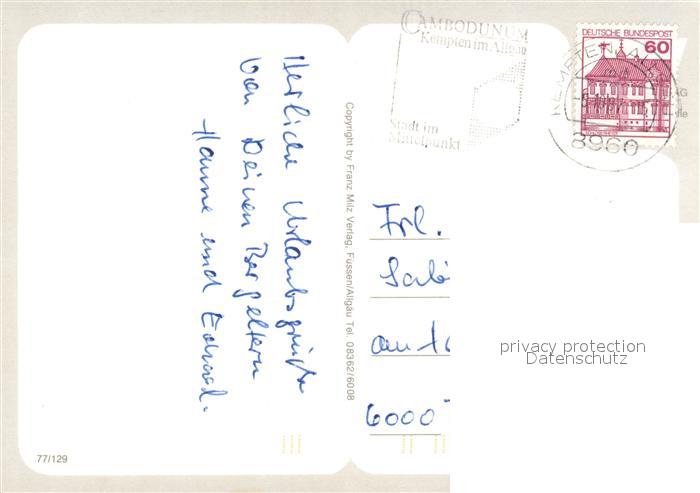 Herzliche Urlaubsgrüße
von Deinen Bergeltern
Hanne und Eduard.
Copyright by Franz Milz Verlag, Füssen/Allgäu Tel. 08362/6008
77/129
CAMBODUNUM
Kempten im Allgäu
Stadt im
Mittelpunkt
DEUTSCHE BUNDESPOST
60
KEMPTEN
8960
Frl.
6000
privacy protection
Datenschutz